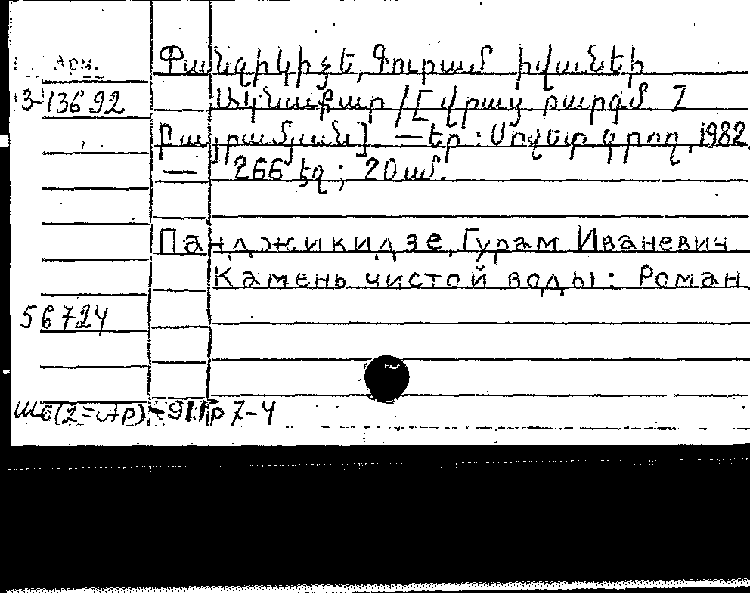 Арм.
3-13692
Փանջիկիձե, Գուրամ Իվանեի
Ակնաքար /[Վրաց. թարգմ. Ղ
Բայրամյան]. — Եր.: Սովետ. գրող, 1982.
— 266 էջ; 20սմ.
Панджикидзе, Гурам Иваневич
Камень чистой воды: Роман
56724
7-4